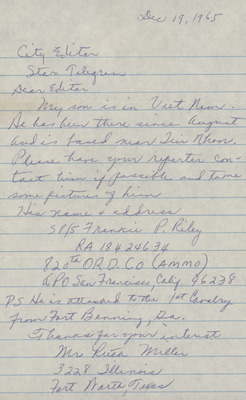 Dec 19, 1965
City Editor
Star Telegram
Dear Editor
My son is in Viet Nam.
He has been there since August
and is based near Qui Nhon.
Please have your reporter con-
tact him if possible and take
some pictures of him
His name & address
SP/5 Frankie P. Riley
RA 18424634
820th ORD. CO (AMMO)
APO San Francisco, Calif 96238
P.S. He is attached to the 1st Cavalry
from Fort Benning, Ga.
Thanks for your interest
Mrs Ruth Miller
3228 Illinois
Fort Worth, Texas